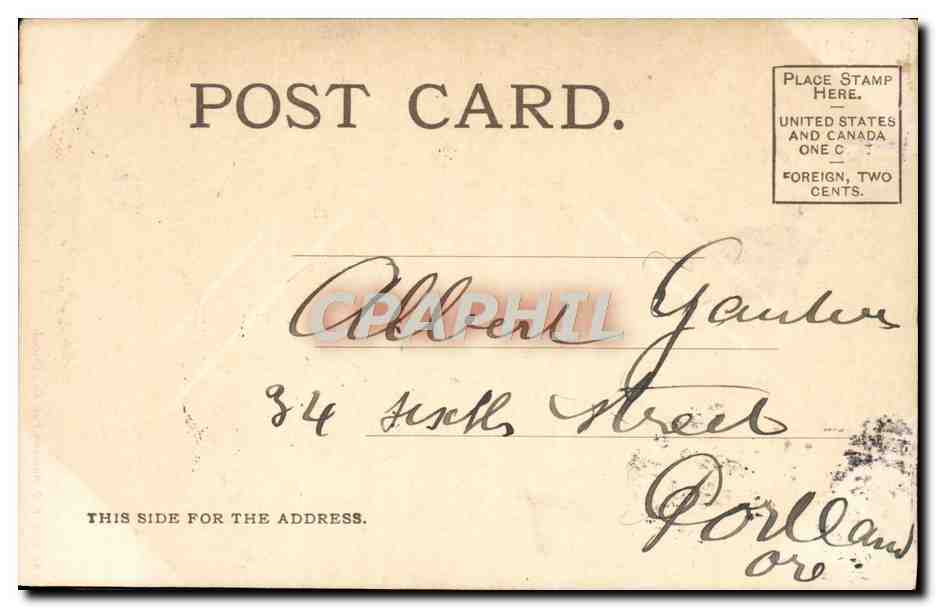 POST CARD.
PLACE STAMP
HERE.
UNITED STATES
AND CANADA
ONE C T
FOREIGN, TWO
CENTS.
Albert
CPAPHIL
34 sixth Street
Portland
Ore
THIS SIDE FOR THE ADDRESS.